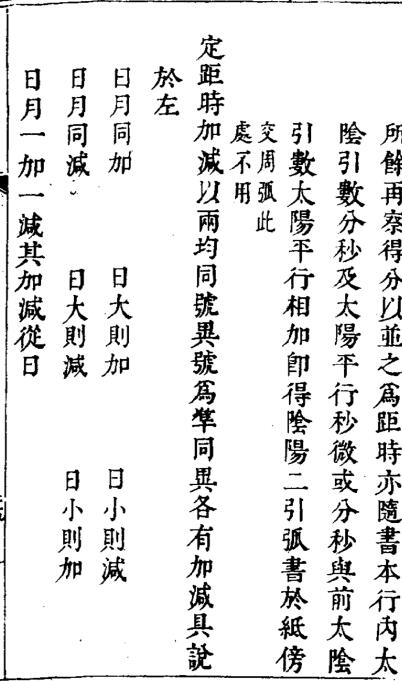 所餘再察得分以並之爲距時亦隨書本行內太
陰引數分秒及太陽平行秒微或分秒與前太陰
引數太陽平行相加卽得陰陽二引弧書於紙傍
交周弧此
處不用
定距時加減以兩均同號異號爲準同異各有加減具說
於左
日月同加 日大則加 日小則減
日月同減 日大則減 日小則加
日月一加一減其加減從日